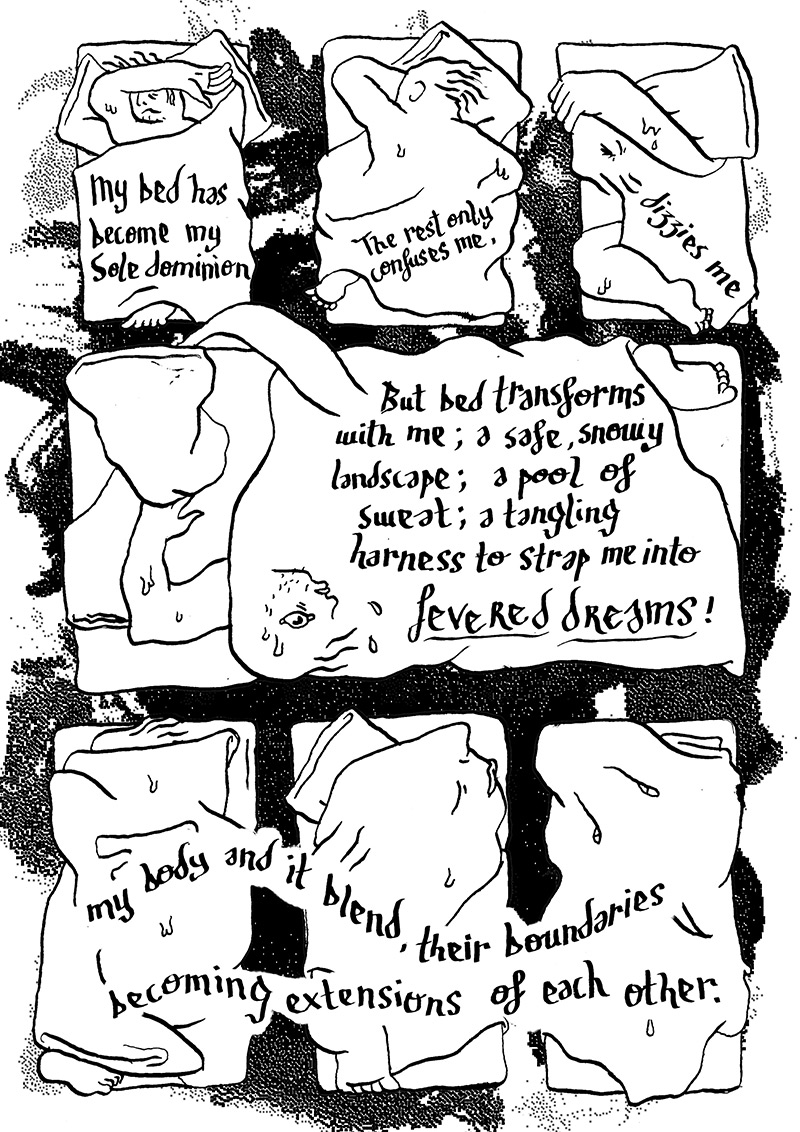 My bed has
become my
Sole dominion
The rest only
confuses me,
dizzies me
But bed transforms
with me; a safe, snowy
landscape; a pool of
sweat; a tangling
harness to strap me into
fevered dreams!
my body and it blend, their boundaries
becoming extensions of each other.